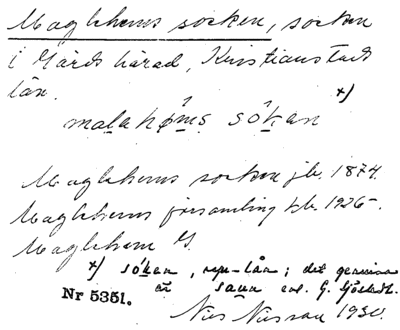 Maglehems socken, socken
i Gärds härad, Kristianstads
län.
x)
malahǫ̈ms sókan
Maglehems socken jb. 1874.
Maglehems församling kb. 1926-.
Maglehem G.
x) sókan, rep-lån; det genuina
är saun enl. G. Sjöstedt.
Nr 5351.
Nils Nilsson 1930.